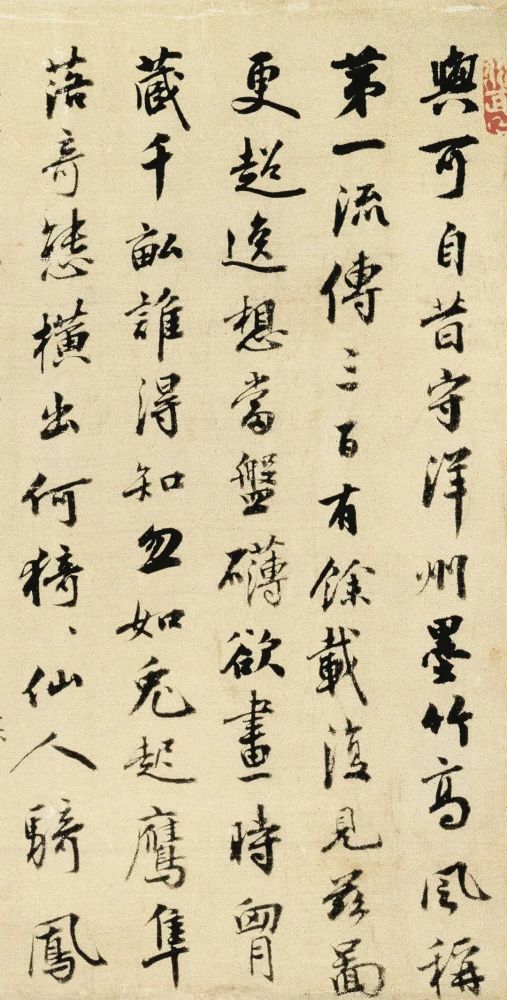 與可自昔守洋州墨竹高風稱
第一流傳三百有餘載復見茲圖
更超逸想當盤礴欲畫時胷
藏千畝誰得知忽如兎起鷹隼
落奇態橫出何猗、仙人騎鳳